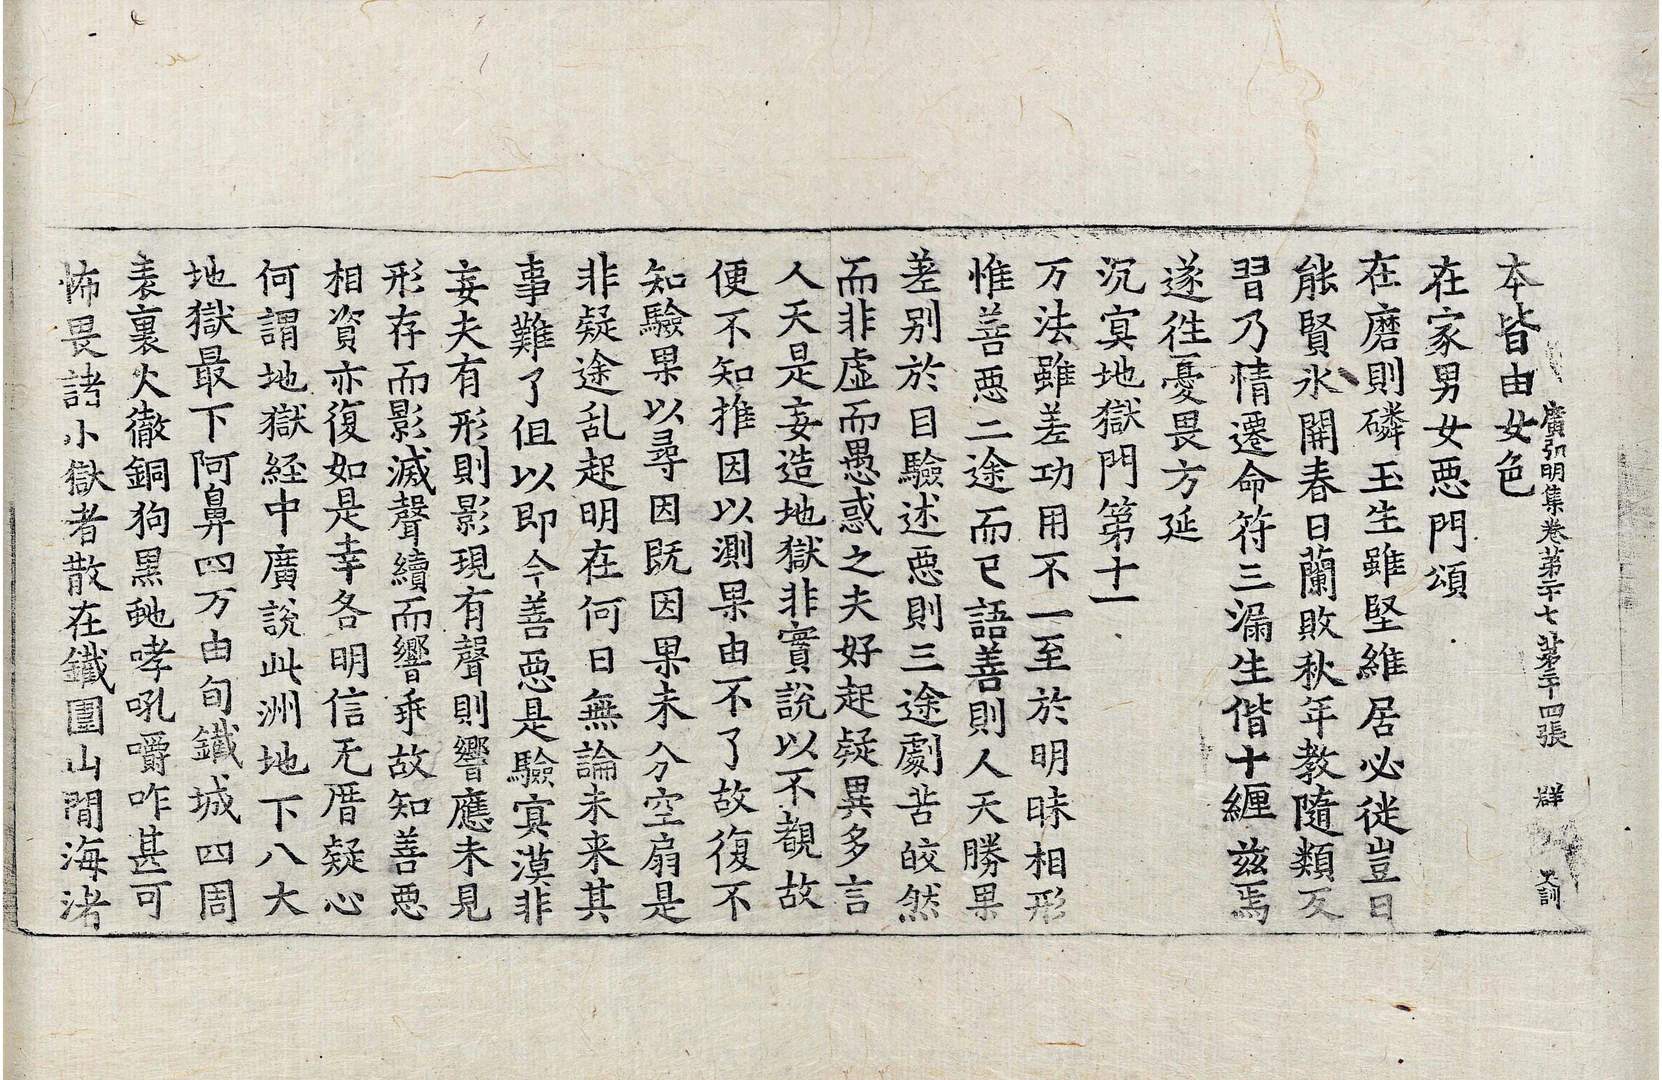 廣弘明集卷第二十七 第二十四張 群
本皆由女色
在家男女惡門頌
在磨則磷玉生雖堅維居必徙豈曰
能賢氷開春日蘭敗秋年教隨類反
習乃情遷命符三漏生偕十纏茲焉
遂往憂畏方延
沉冥地獄門第十一
万法雖差功用不一至於明昧相形
惟善惡二途而已語善則人天勝果
差別於目驗述惡則三途劇苦皎然
而非虛而愚惑之夫好起疑異多言
人天是妄造地獄非實說以不覩故
便不知推因以測果由不了故復不
知驗果以尋因既因果未分空扇是
非疑途乱起明在何日無論未来其
事難了伹以即今善惡是驗冥漠非
妄夫有形則影現有聲則響應未見
形存而影滅聲續而響乖故知善惡
相資亦復如是幸各明信无厝疑心
何謂地獄経中廣說此洲地下八大
地獄最下阿鼻四万由旬鐵城四周
表裏火徹銅狗黑虵哮吼嚼咋甚可
怖畏諸小獄者散在鐵圍山間海渚